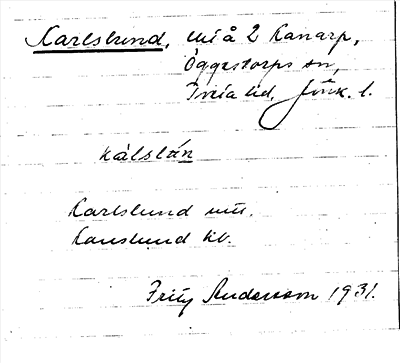 Karlslund, uti å 2 Kanarp,
Öggestorps sn,
Tveta hd, Jönk. l.
kálslán
Karlslund mtl.
Karslund kb.
Fritz Andersson 1931.